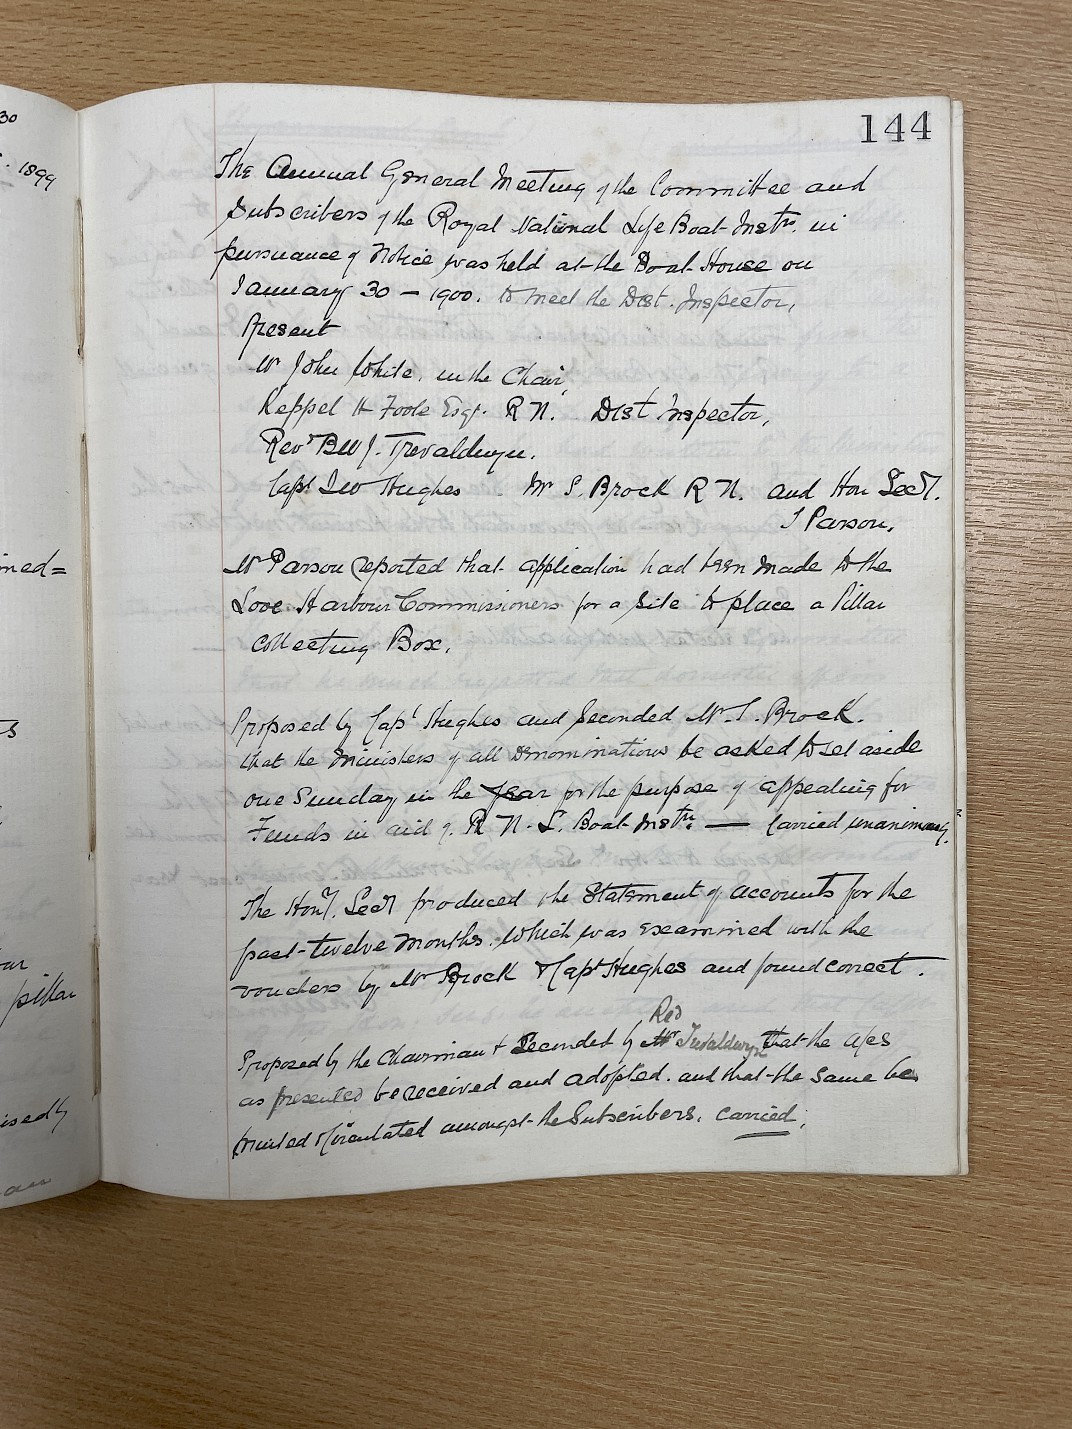 30
1899
144
The Annual General Meeting of the Committee and
Subscribers of the Royal National Life Boat Instn. in
pursuance of Notice was held at the Boat House on
January 30 – 1900. to meet the Dist. Inspector,
Present
Mr John White. in the Chair,
Keppel H Foote Esqr. R N. Dist Inspector,
Revd BWJ. Trevaldwyn.
Capt Hughes Mr S. Brock R N. and Hon Secy.
T Parson.
Mr Parson reported that application had been made to the
Looe Harbour Commissioners for a Site to place a Pillar
Collecting Box.
Proposed by Capt Hughes and Seconded Mr. S. Brock.
that the Ministers of all Denominations be asked to set aside
one Sunday in the year for the purpose of appealing for
Funds in aid of R N. L. Boat Instn. — Carried unanimously.
The Hony. Secy produced the Statement of accounts for the
past twelve Months. Which was examined with the
vouchers by Mr Brock & Capt Hughes and found correct.
Rev
Proposed by the Chairman & Seconded by Mr Trevaldwyn that the a/cs
as presented be received and adopted. and that the same be
printed & circulated amongst the Subscribers. carried.
ned=
pillar